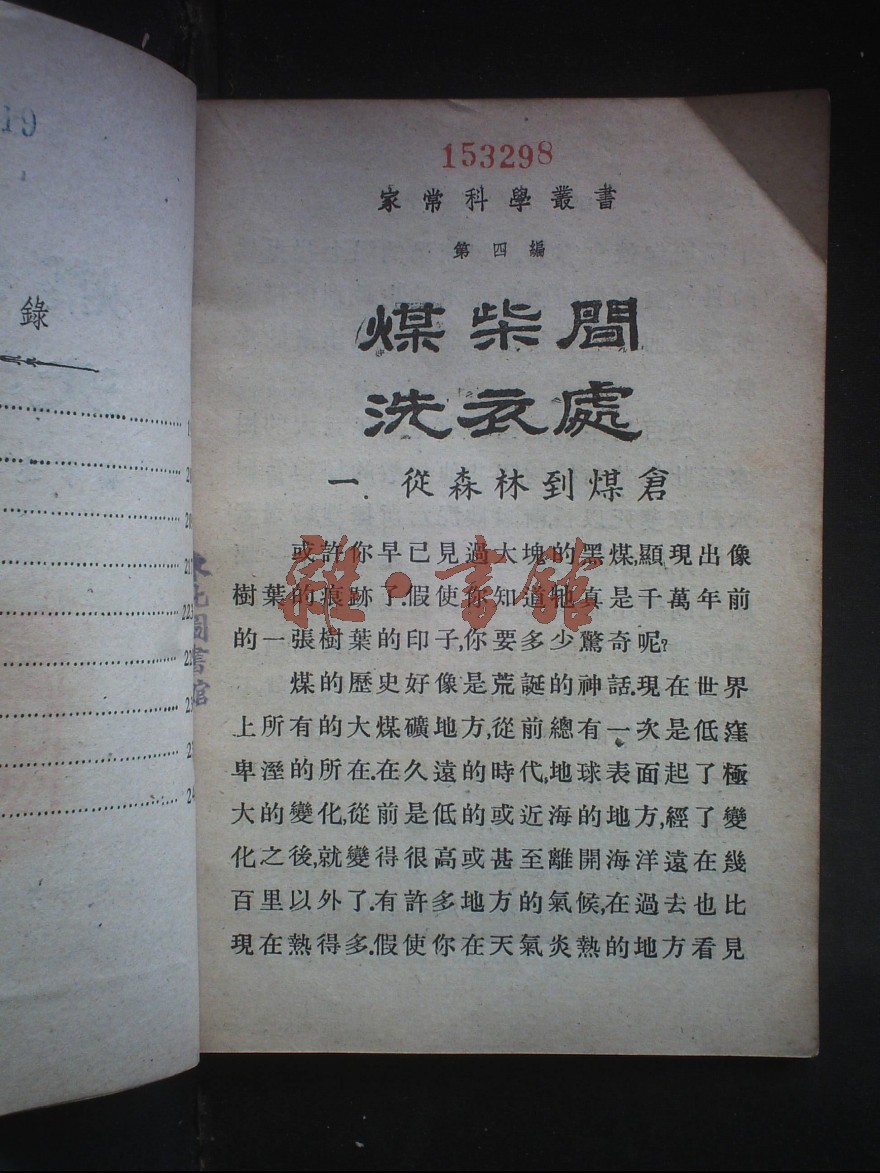 錄
153298
家常科學叢書
第四編
煤柴間
洗衣處
一. 從森林到煤倉
或許你早已見過大塊的黑煤,顯現出像
樹葉的痕跡了.假使你知道牠真是千萬年前
的一張樹葉的印子,你要多少驚奇呢?
煤的歷史好像是荒誕的神話.現在世界
上所有的大煤礦地方,從前總有一次是低窪
卑溼的所在.在久遠的時代,地球表面起了極
大的變化,從前是低的或近海的地方,經了變
化之後,就變得很高或甚至離開海洋遠在幾
百里以外了.有許多地方的氣候,在過去也比
現在熱得多.假使你在天氣炎熱的地方看見
雜·書館
圖書館
223